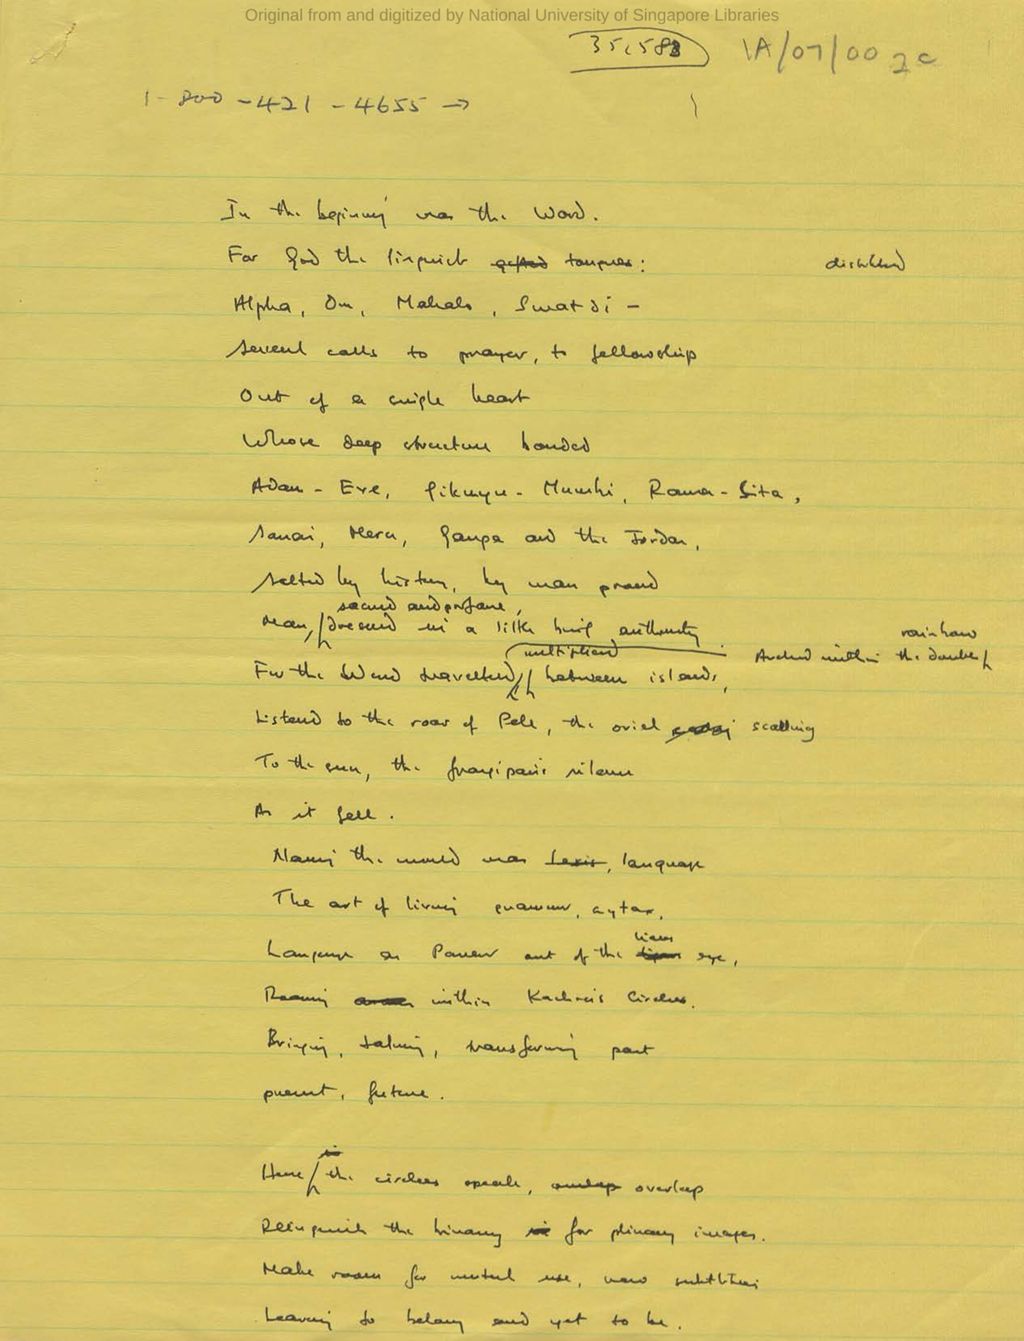 Original from and digitized by National University of Singapore Libraries
35,588
1A/07/00 2c
1-800-421-4655 →
In the beginning was the Word.
For God the linguist tongues: dishelled
Alpha, Om, Mahalo, Swatdi -
Several calls to prayer, to fellowship
Out of a single heart
Whose deep structure bonded
Adam - Eve, Gikuyu - Mumbi, Rama - Sita,
Sanai, Meru, Ganga and the Jordan,
Salted by history, by man proud
sacred and profane,
Man, dressed in a little brief authority
multiplied rainbow
Arched within the double
For the Word travelled between islands,
Listened to the roar of Pele, the oriel scaling
To the sun, the frangipani's silence
As it fell.
Naming the world was lexis, language
The art of living grammar, syntax,
lion's
Language as Power out of the eye,
Roaming within Kachru's Circles.
Bringing, taking, transforming past
present, future.
Here the circles speak, overlap overlap
Relinquish the binary for plinary images.
Make room for mutual use, new subtleties
Learning to belong and yet to be.